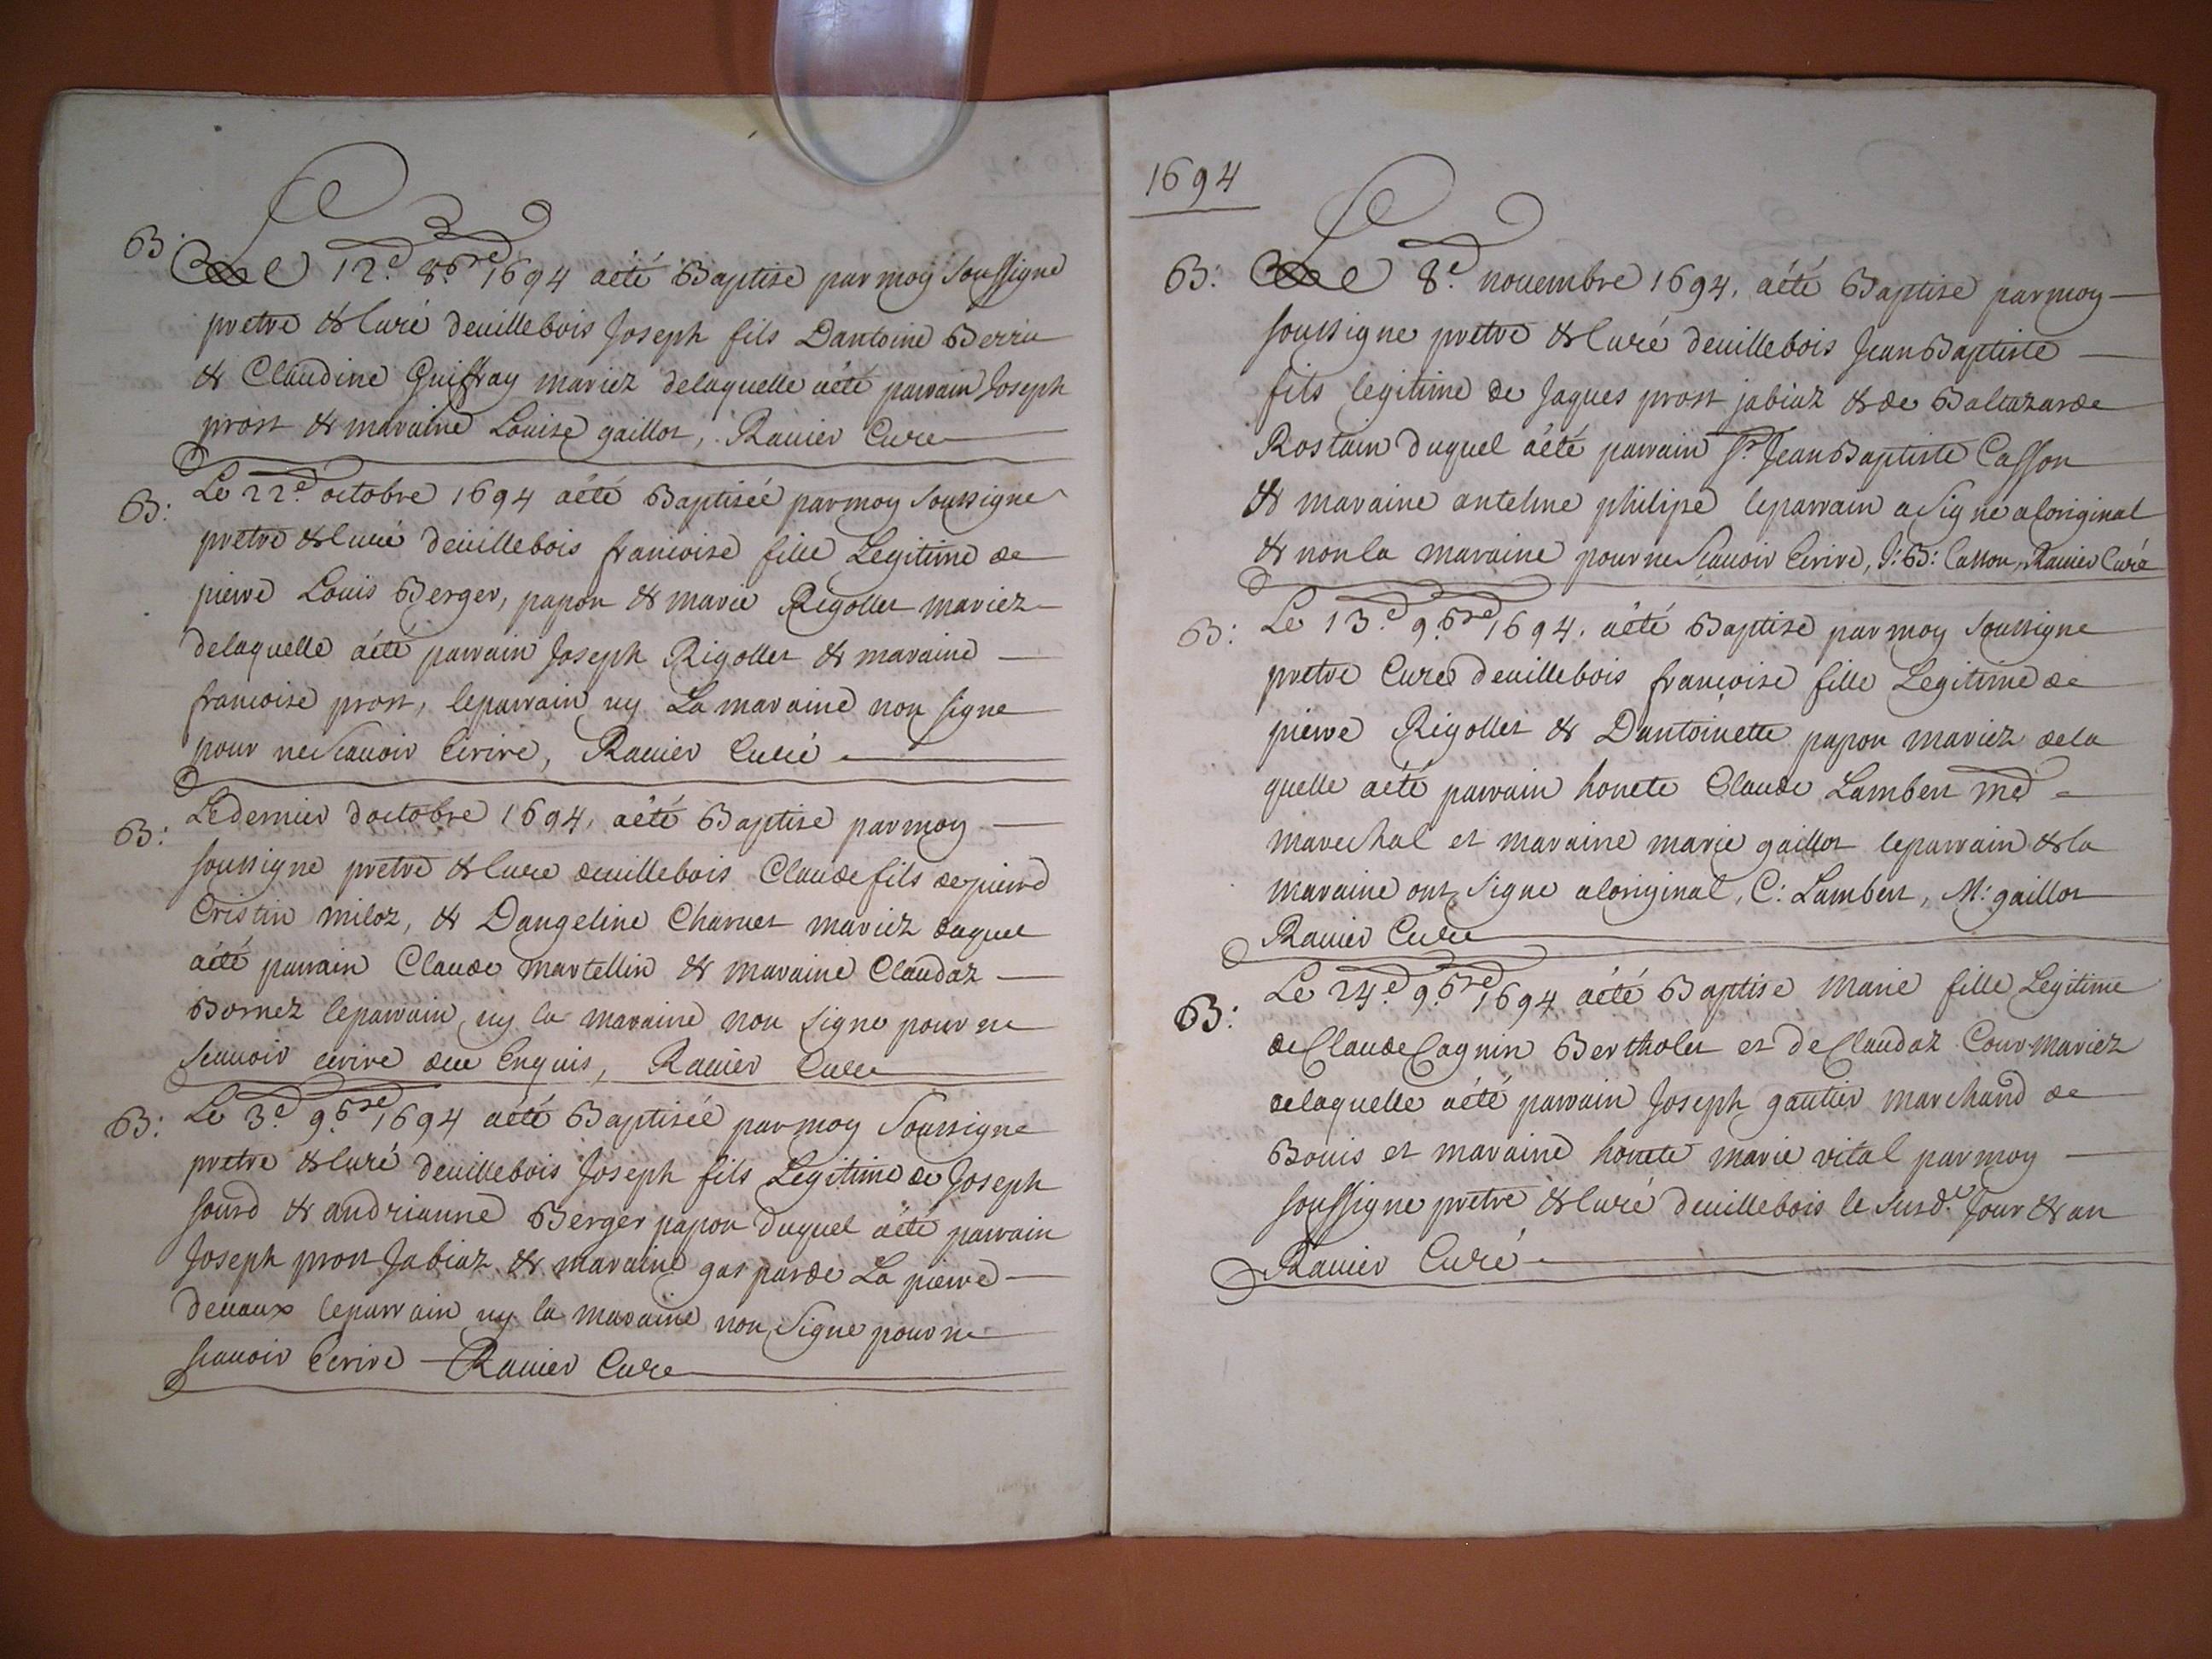 B: Le 12.e 8.bre 1694 aété Baptise parmoy soussigne
pretre & Curé deuillebois Joseph fils Dantoine Berrin
& Claudine Guiffray mariez delaquelle aété parrain Joseph
prost & maraine Louise gaillot, Rauier Cure
B: Le 22.e octobre 1694 aété Baptisée parmoy Soussigne
pretre & Curé deuillebois francoise fille Legitime de
pierre Louis Berger, papon & marie Rigollet mariez
delaquelle aété parrain Joseph Rigollet & maraine
francoise prost, leparrain ny La maraine non signe
pour ne Scauoir Ecrire, Rauier Curé
B: Ledernier doctobre 1694, aété Baptise parmoy
soussigne pretre & Cure deuillebois Claude fils depierre
Cristin miloz, & Dangeline Charuet mariez duquel
aété parrain Claude martellin & maraine Claudaz
Bornez leparrain ny la maraine non signe pour ne
Scauoir ecrire deu Enquis, Rauier Cure
B: Le 3.e 9.bre 1694 aété Baptisée parmoy Soussigne
pretre & Curé deuillebois Joseph fils Legitime de Joseph
sourd & andrianne Berger papon duquel aété parrain
Joseph prost Jabiaz & maraine gasparde La pierre
deuaux leparrain ny la maraine non Signe pour ne
scauoir Ecrire Rauier Cure
1694
B: Le 8.e nouembre 1694. aété Baptise parmoy
soussigne pretre & Curé deuillebois Jean Baptiste
fils legitime de Jaques prost jabiaz & de Baltazarde
Rostain duquel aété parrain Sr. Jean Baptiste Casson
& maraine antelme philipe leparrain a Signé aloriginal
& non la maraine pour ne Scauoir Ecrire, J: B: Casson, Rauier Curé
B: Le 13.e 9.bre 1694. aété Baptise parmoy Soussigne
pretre Curé deuillebois françoise fille Legitime de
pierre Rigollet & Dantoinette papon mariez dela
quelle aété parrain honete Claude Lambert md
marechal et maraine marie gaillot leparrain & la
maraine ont Signe aloriginal, C: Lambert, M: gaillot
Rauier Cure
B: Le 24.e 9.bre 1694 aété Baptise Marie fille Legitime
de Claude Cagnin Bertholet et de Claudaz Cour mariez
delaquelle aété parrain Joseph gautier marchand de
Bouis et maraine honete marie vital parmoy
soussigne pretre & Curé deuillebois le Susd.e Jour & an
Rauier Curé